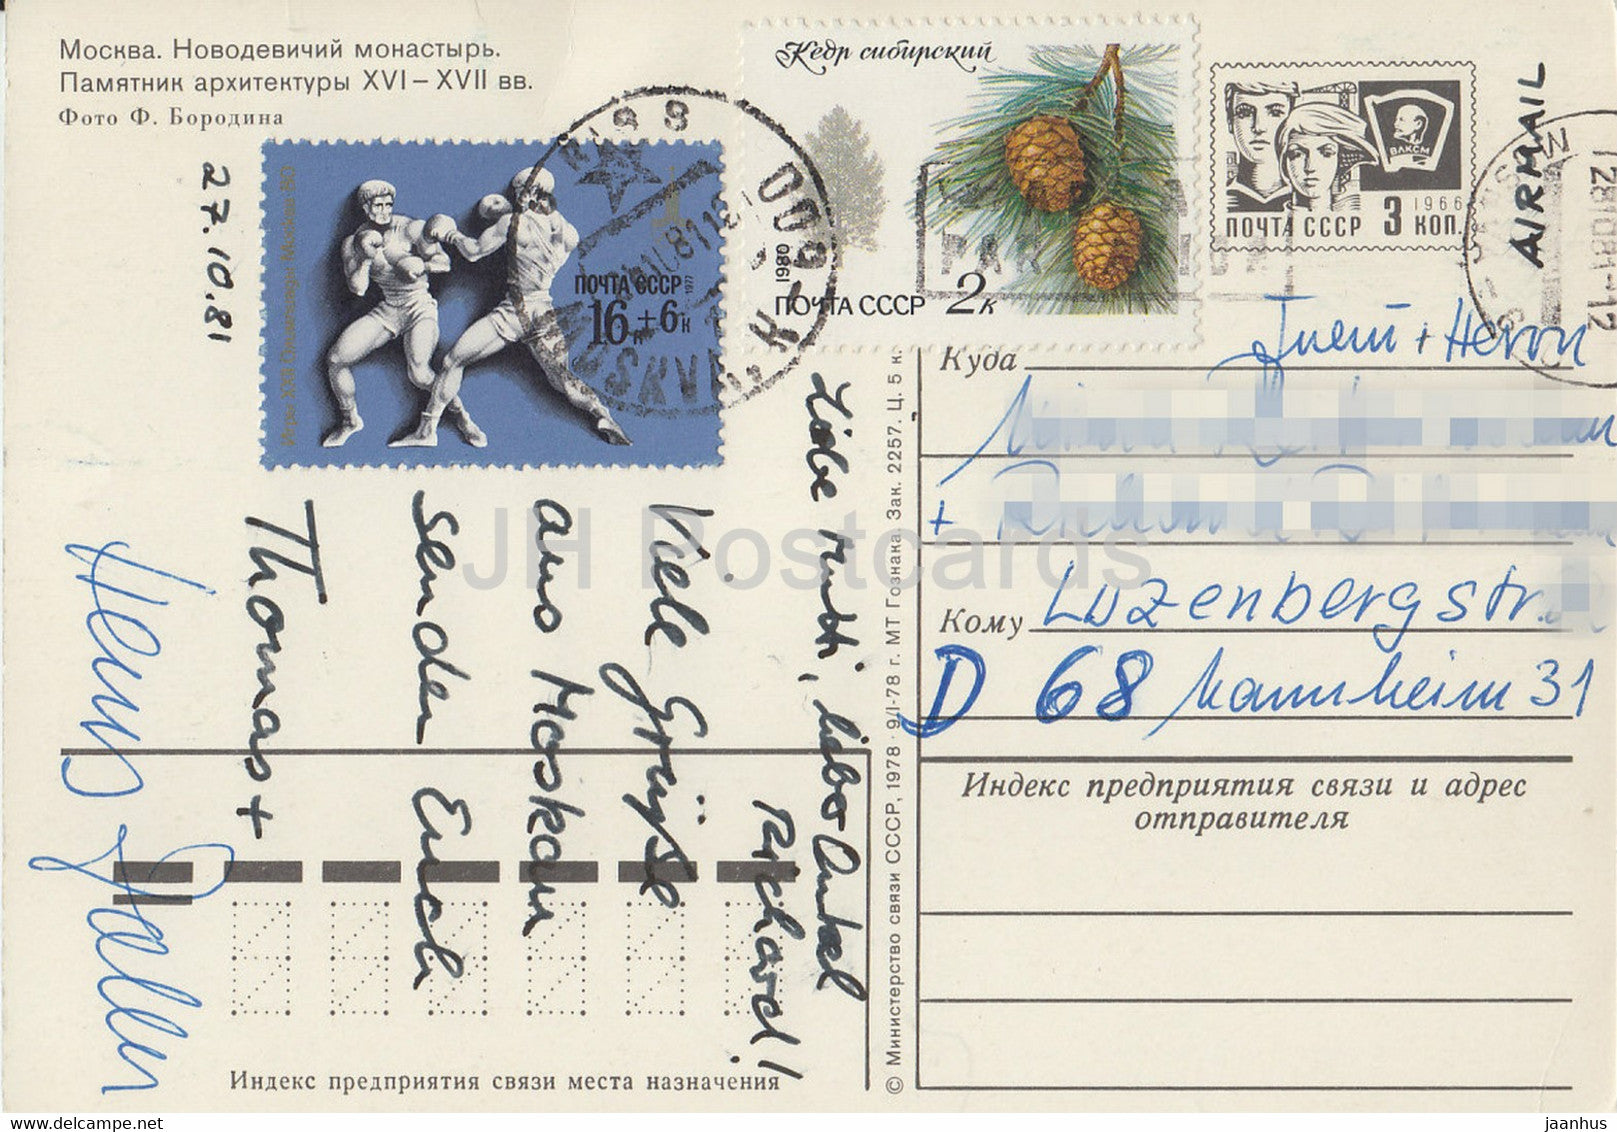 Москва. Новодевичий монастырь.
Памятник архитектуры XVI – XVII вв.
Фото Ф. Бородина
27.10.81
Игры XXII Олимпиады Москва-80
ПОЧТА СССР
1977
16к+6к
Кедр сибирский
1980
ПОЧТА СССР 2к
ВЛКСМ
1966
ПОЧТА СССР 3 КОП.
AIRMAIL
MOSKVA
Liebe Mutti, lieber Onkel
Richard!
Viele Grüsse
aus Moskau
senden Euch
Thomas +
Куда
+ Herrn
+
Кому Luzenbergstr.
D 68 Mannheim 31
Индекс предприятия связи и адрес
отправителя
Индекс предприятия связи места назначения
© Министерство связи СССР, 1978 · 9/I-78 г. МТ Гознака. Зак. 2257. Ц. 5 к.
JH Postcards
jaanhus
www.delcampe.net